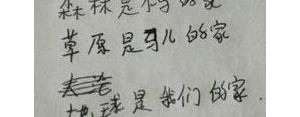 森林是 的家
草原是马儿的家
地球是我们的家.